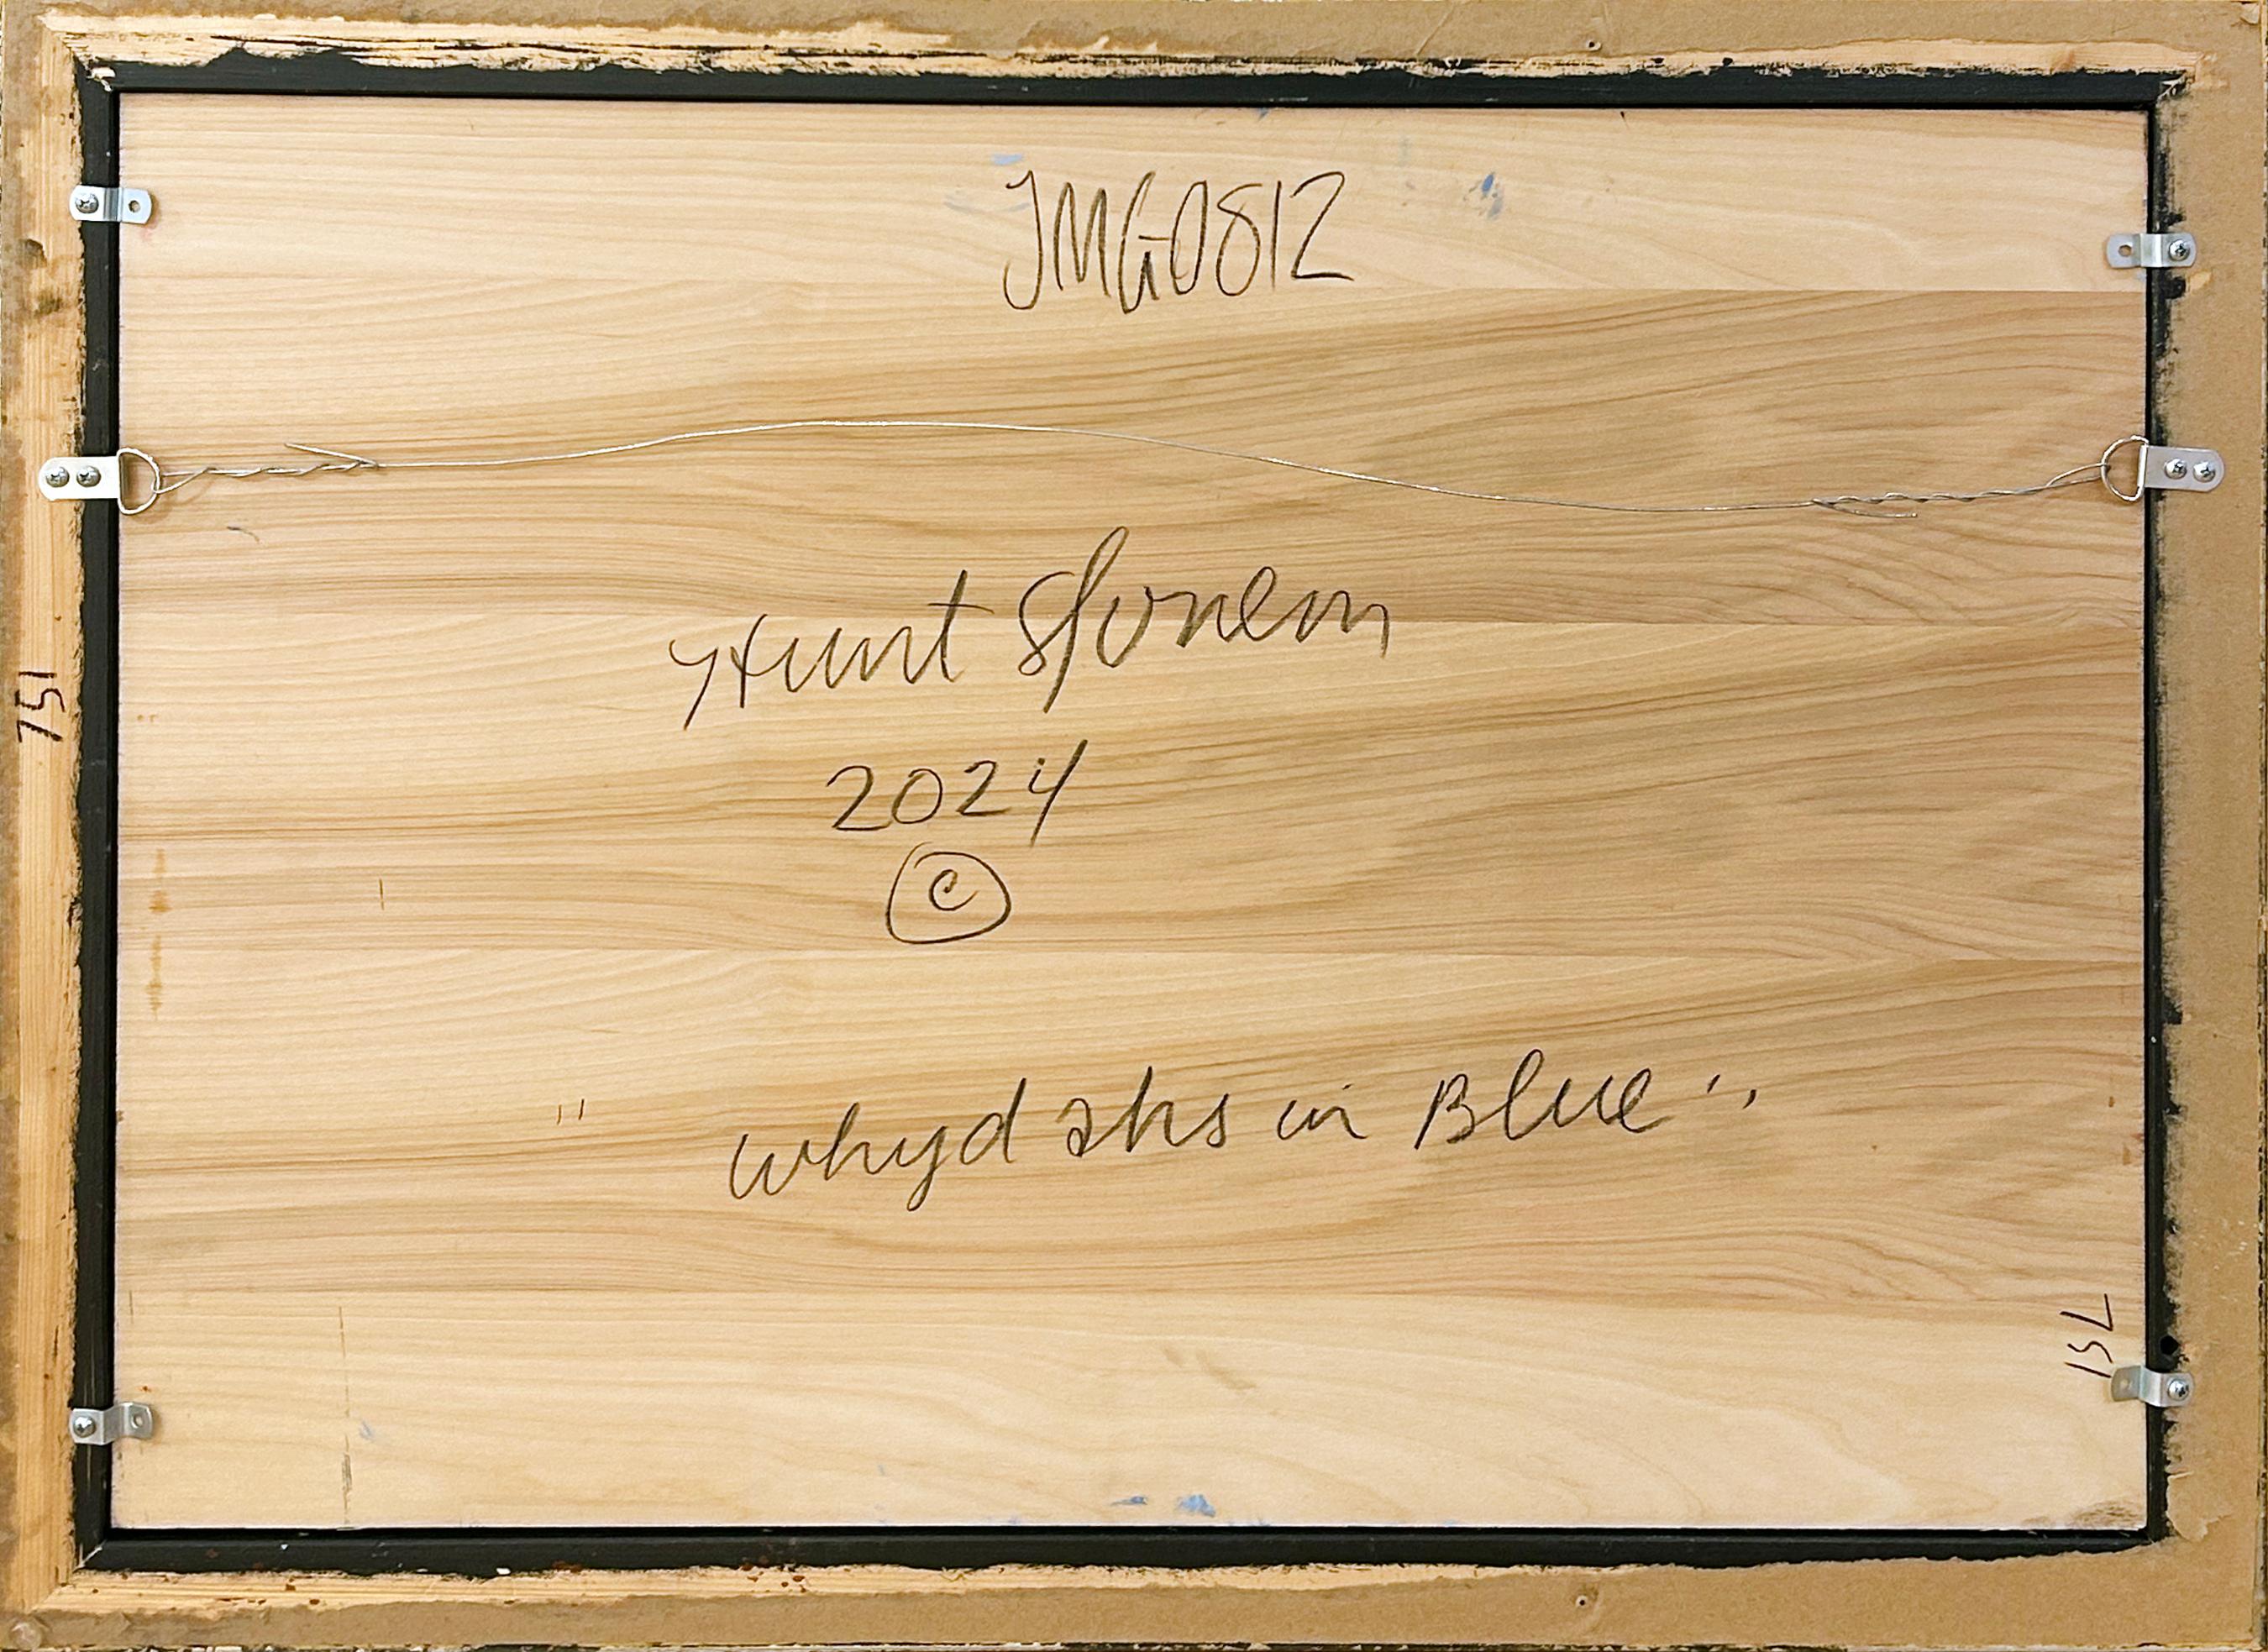 JMG0812
Hunt Slonem
2024
©
"Whydahs in Blue".
751
751